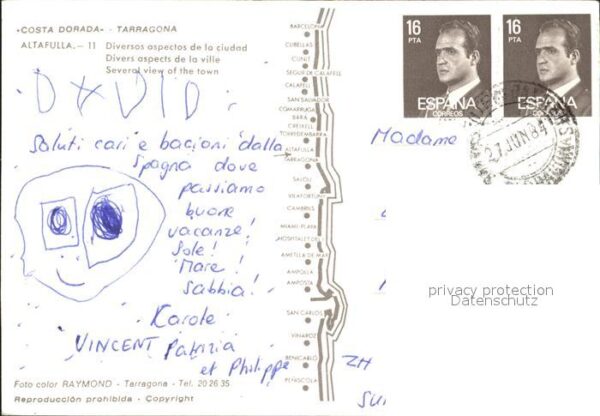 «COSTA DORADA» - TARRAGONA
ALTAFULLA. - 11 Diversos aspectos de la ciudad
Divers aspects de la ville
Several view of the town
DAVID
Saluti cari e bacioni dalla
Spagna dove
passiamo
buone
vacanze!
Sole!
Mare!
Sabbia!
Karole
VINCENT Patrizia
et Philippe
Foto color RAYMOND - Tarragona - Tel. 20 26 35
Reproducción prohibida - Copyright
BARCELONA
CUBELLAS
CUNIT
SEGUR DE CALAFELL
CALAFELL
SAN SALVADOR
COMARRUGA
BARA
CREIXELL
TORREDEMBARRA
ALTAFULLA
TARRAGONA
SALOU
VILAFORTUNY
CAMBRILS
MIAMI-PLAYA
HOSPITALET DEL
AMETLLA DE MAR
AMPOLLA
AMPOSTA
SAN CARLOS
VINAROZ
BENICARLO
PEÑISCOLA
16 PTA
ESPAÑA
CORREOS
16 PTA
ESPAÑA
CORREOS
27 JUN 84
Madame
privacy protection
Datenschutz
ZH